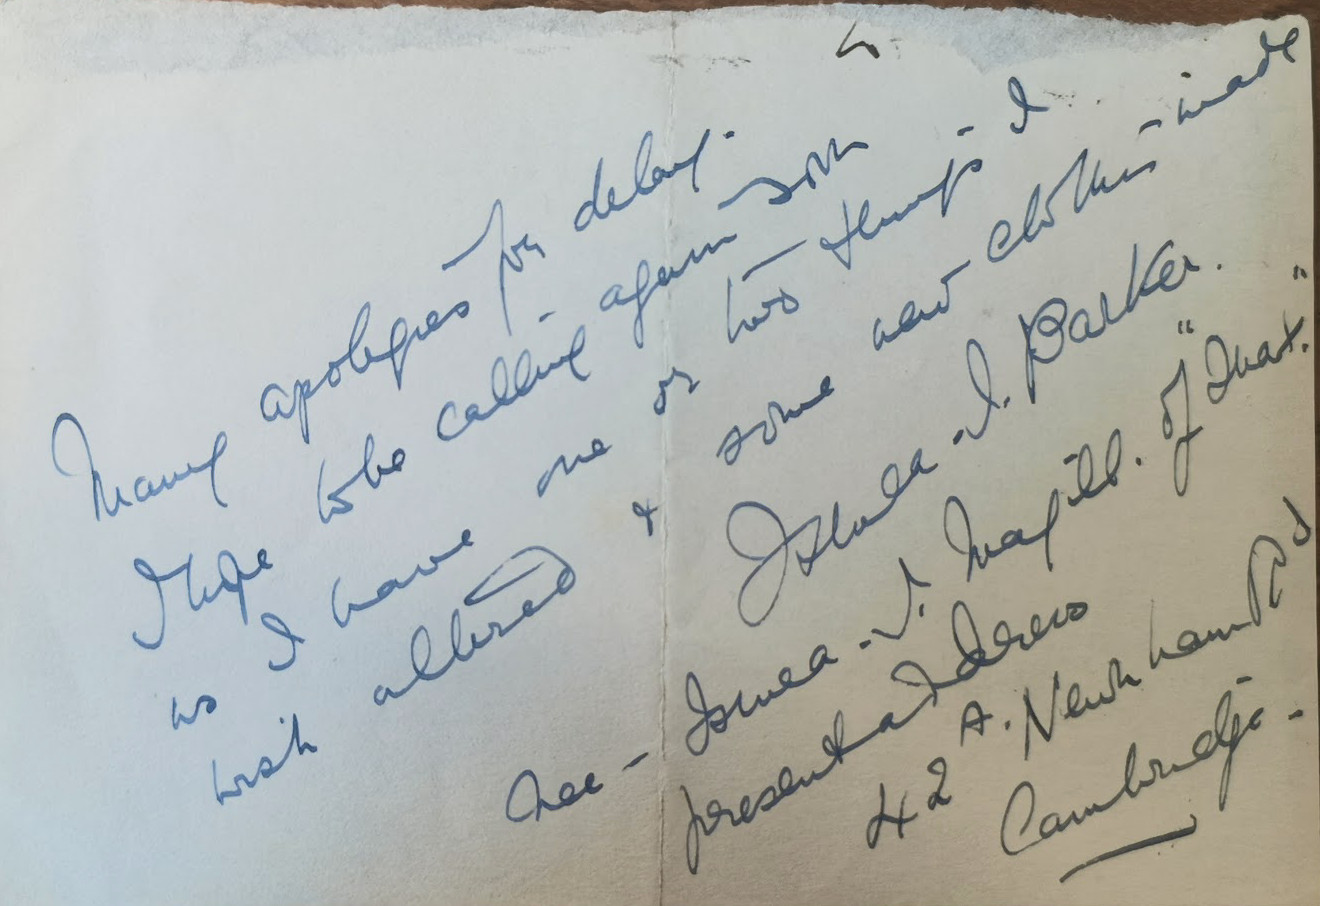 Many apologies for delay.
I hope to be calling again soon
as I have one or two things I
wish altered & some new clothes made
I. Barker.
nee - J. of "
present address
42 A. Newnham Rd
Cambridge.